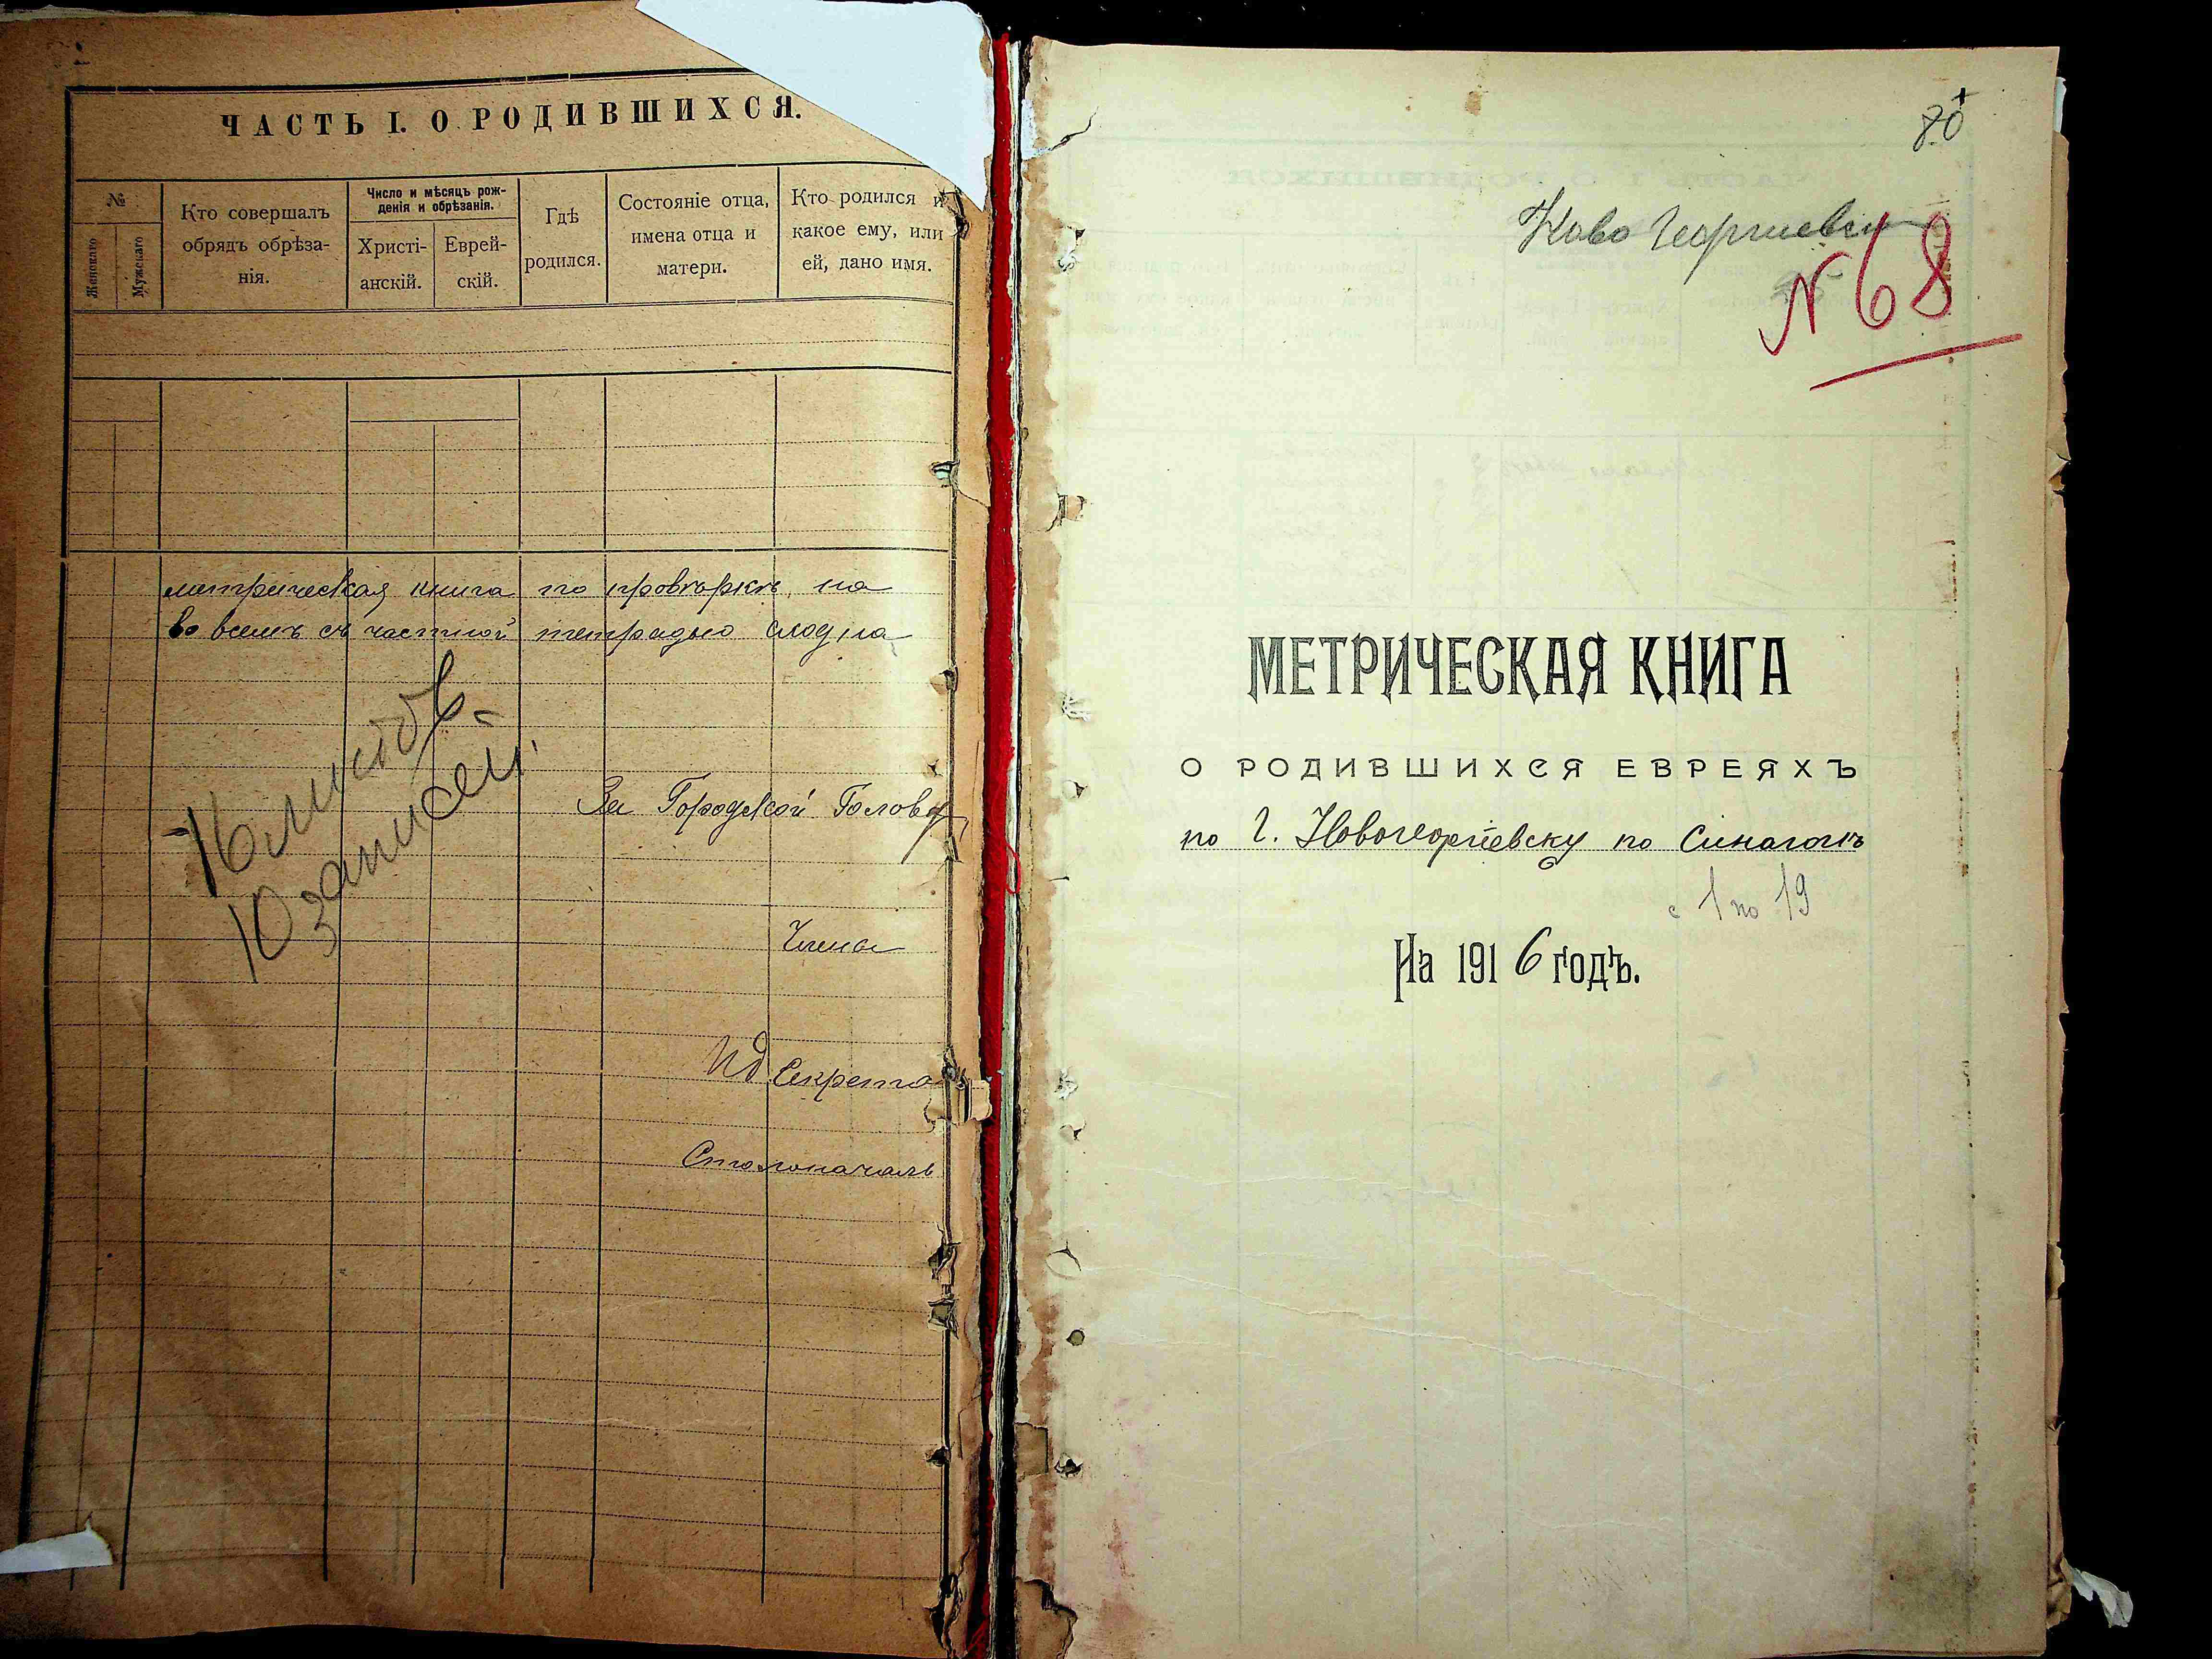 ЧАСТЬ I. О РОДИВШИХСЯ.
№
Женскаго
Мужскаго
Кто совершалъ
обрядъ обрѣза-
нія.
Число и мѣсяцъ рож-
денія и обрѣзанія.
Христі-
анскій.
Еврей-
скій.
Гдѣ
родился.
Состояніе отца,
имена отца и
матери.
Кто родился и
какое ему, или
ей, дано имя.
метрическая книга по провѣркѣ на
во всемъ съ частной тетрадью сходна
16 листов-
10 записей.
За Городской Голову
Члены
Ид Секрета
Столоначаль
80
Ново Георгиевск
N 68
МЕТРИЧЕСКАЯ КНИГА
О РОДИВШИХСЯ ЕВРЕЯХЪ
по г. Новогеоргіевску по Синагогѣ
с 1 по 19
На 1916 годъ.